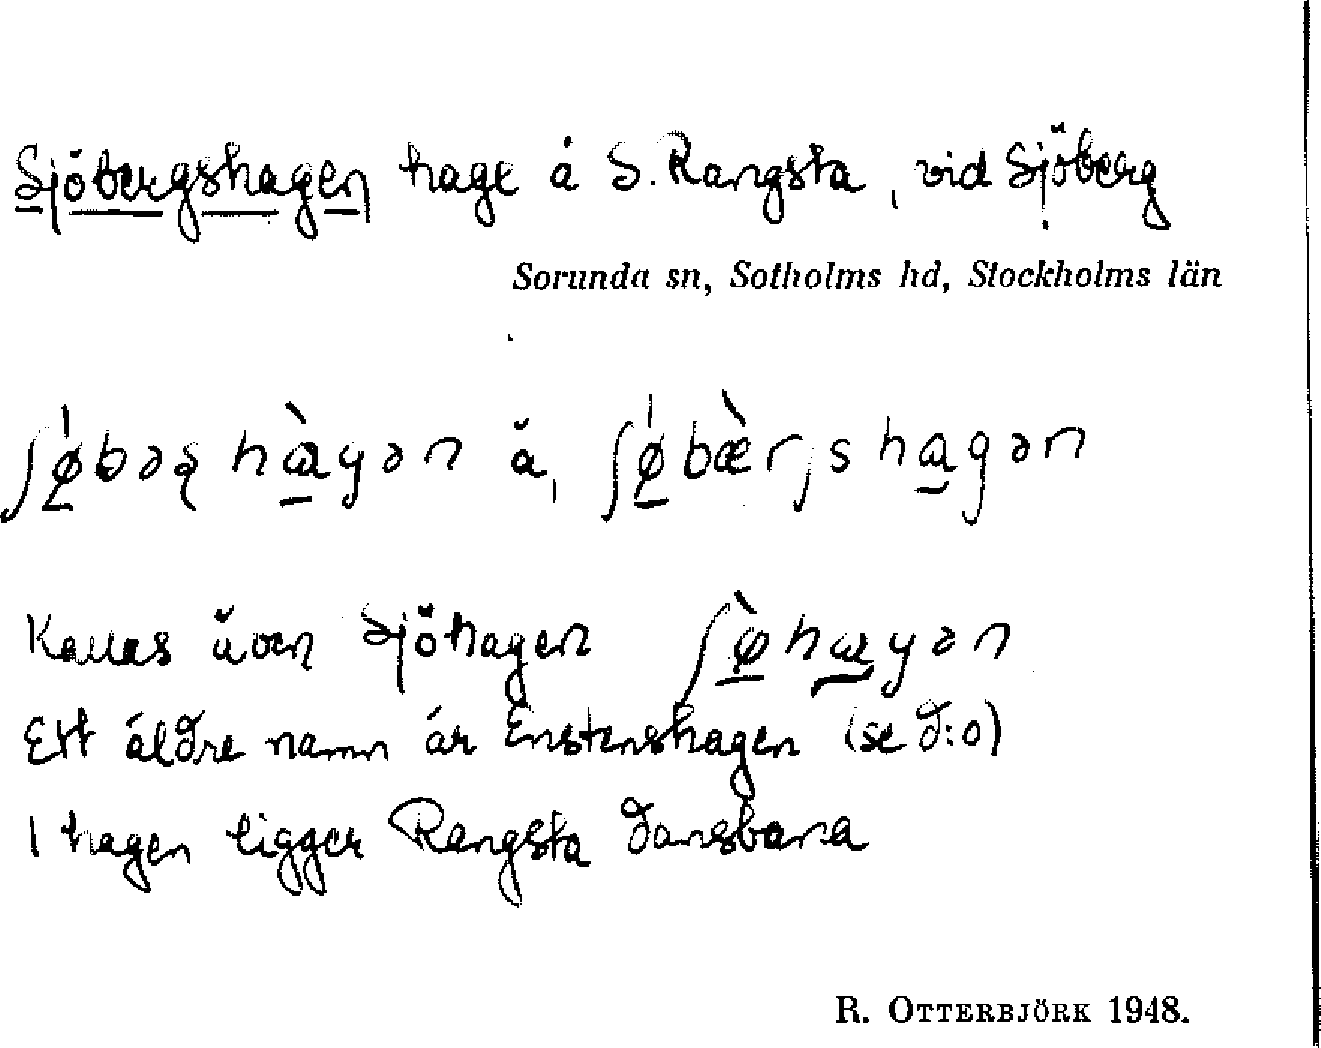 Sjöbergshagen hage å S. Rangsta, vid Sjöberg
Sorunda sn, Sotholms hd, Stockholms län
hàgən ä,
Kallas även Sjöhagen
Ett äldre namn är Enstenshagen (se d:o)
I hagen ligger Rangsta dansbana
R. OTTERBJÖRK 1948.